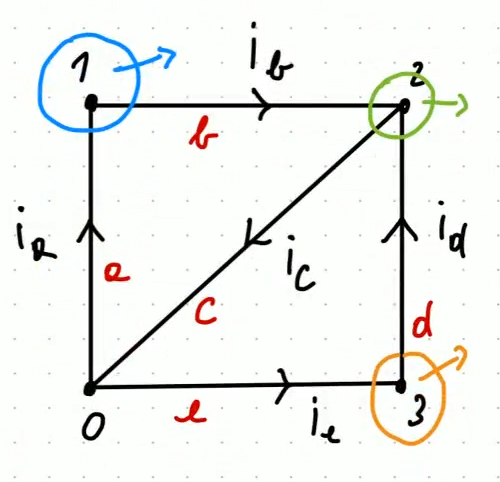 1
i_b
2
b
i_a
a
i_c
i_d
c
d
0
e
i_e
3